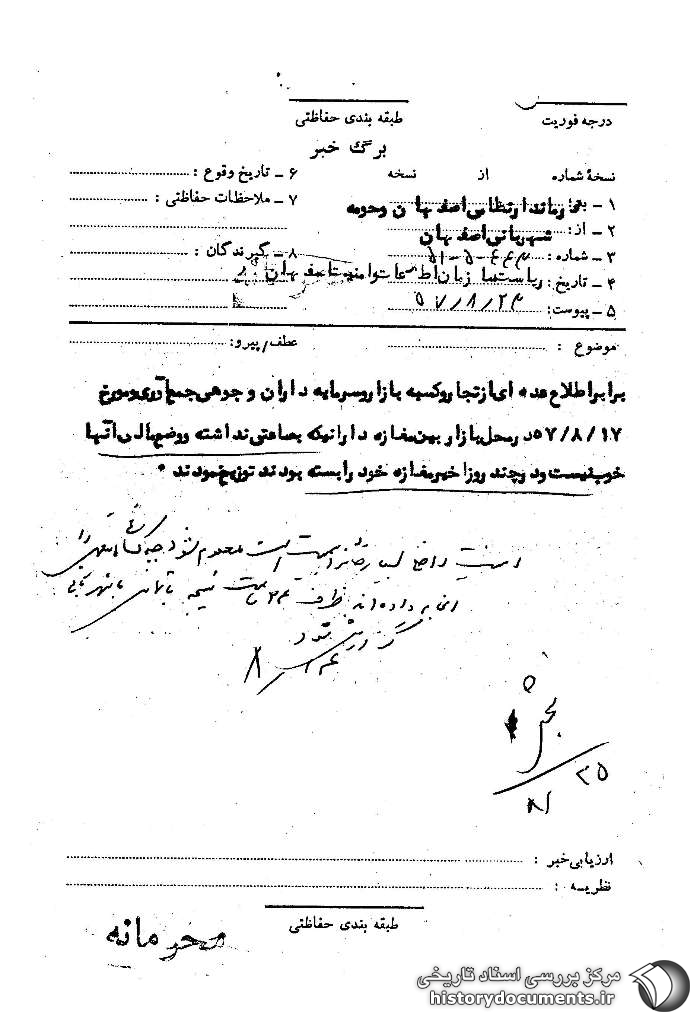 درجه فوریت
طبقه بندی حفاظتی
برگ خبر
نسخهٔ شماره از نسخه
۶ - تاریخ وقوع :
۱ - به: فرماندار نظامی اصفهان وحومه
۷ - ملاحظات حفاظتی :
۲ - از: شهربانی اصفهان
۳ - شماره : ۴۴۳-۵-۵۱
۸ - گیرندگان :
ریاست سازمان اطلاعات وامنیت اصفهان
۴ - تاریخ : ۵۷/۸/۲۳
۵ - پیوست:
موضوع :
عطف/پیرو:
برابر اطلاع عده ای از تجار وکسبه بازار وسرمایه داران وجوهی جمع آوری ودرمورخ
۵۷/۸/۱۷ در محل بازار بین مغازه دارانیکه بضاعتی نداشته ووضع مالی آنها
خوب نیست ودر چند روز اخیر مغازه خود را بسته بودند توزیع نمودند .
معلوم شود چه
داده اند ظرف نتیجه
شود
۸
۲۵
۸
ارزیابی خبر :
نظریه :
طبقه بندی حفاظتی
محرمانه
مرکز بررسی اسناد تاریخی
historydocuments.ir